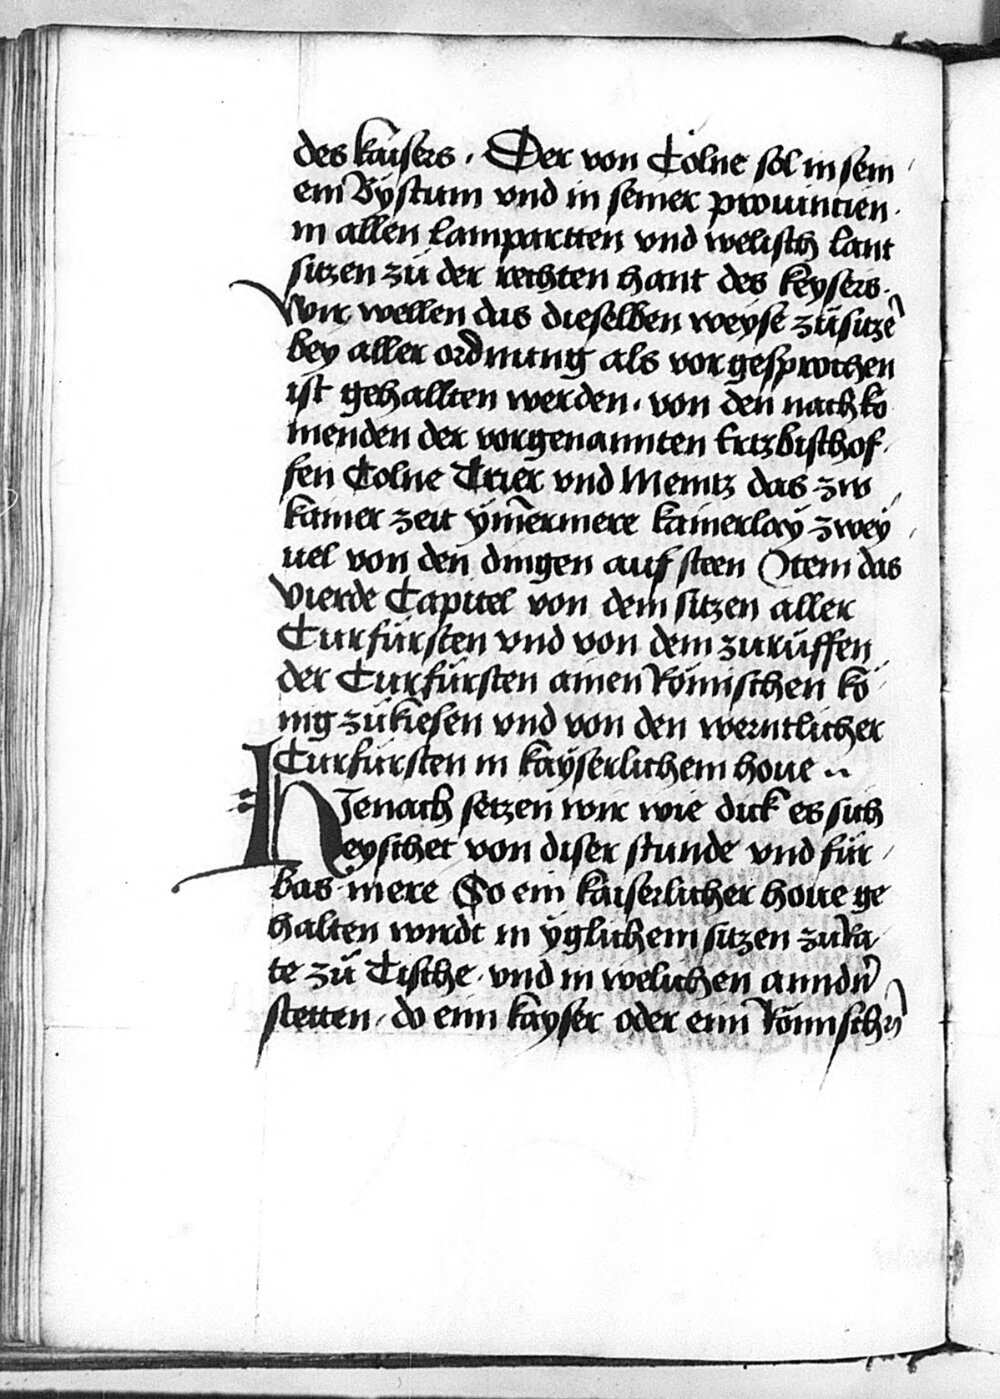 des kaisers · Der von Cölne sol in sein
em Bÿstum vnd in seiner prouintien ·
in allen lampartten vnd welisch lant
sitzen zů der rechten hant des keysers ·
wir wellen das dieselben weyse zůsitzē
bey aller ordnung als vor gesprochen
ist gehallten werden · von den nachko
menden der vorgenannten Ertzbischof
fen Colne Trier vnd Meintz das zw
kainer zeit ÿm̄ermere kainerlay zwey
uel von den dingen auf steen Item das
vierde Capitel von dem sitzen aller
Curfürsten vnd von dem zurůffen
der Curfürsten ainen Römischen kö
nig zůkiesen vnd von den werntlicher
Curfürsten in kaÿserlichem houe ··
HJenach setzen wir wie dick es sich
heyschet von diser stunde vnd für
bas mere So ein kaiserlicher houe ge
halten wirdt in ÿglichem sitzen zu Ra
te zů Tische · vnd in welichen anndn̄
stetten · do ein kayser oder ein Römischn̄